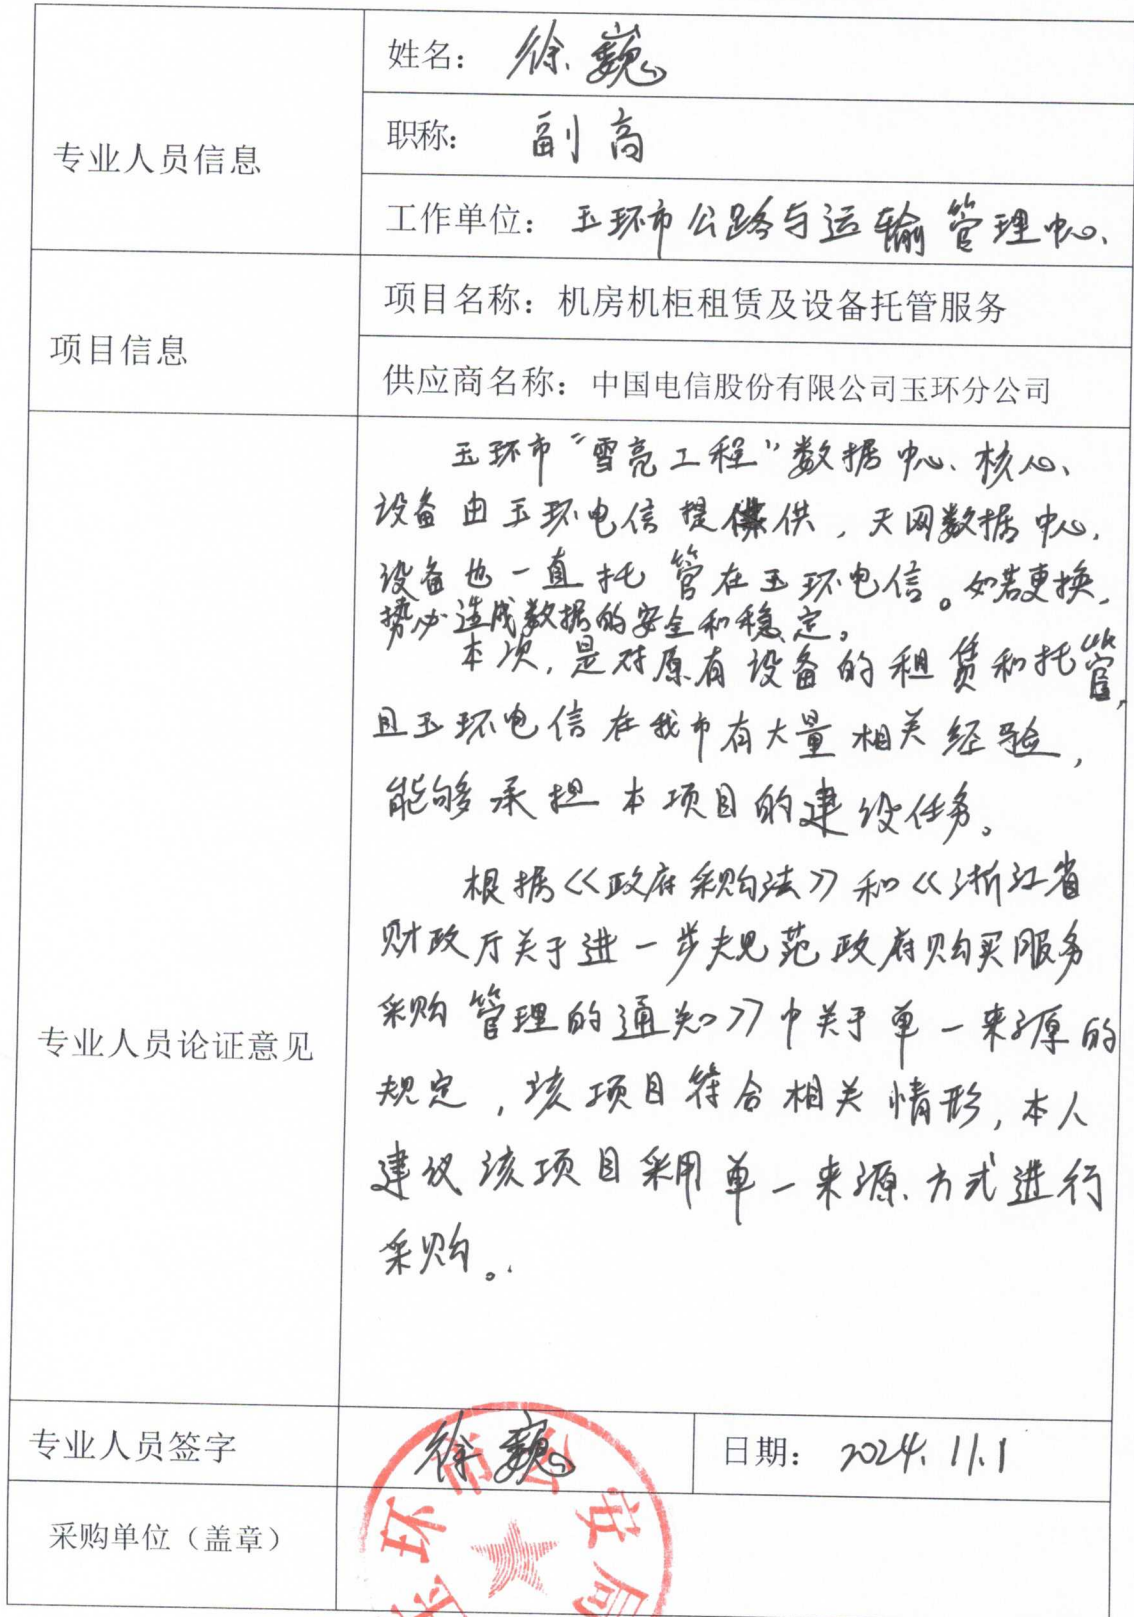 专业人员信息
姓名：徐巍
职称：副高
工作单位：玉环市公路与运输管理中心
项目信息
项目名称：机房机柜租赁及设备托管服务
供应商名称：中国电信股份有限公司玉环分公司
专业人员论证意见
玉环市“雪亮工程”数据中心、核心
设备由玉环电信提供，天网数据中心
设备也一直托管在玉环电信。如若更换，
势必造成数据的安全和稳定。
本次，是对原有设备的租赁和托管，
且玉环电信在我市有大量相关经验，
能够承担本项目的建设任务。
根据《政府采购法》和《浙江省
财政厅关于进一步规范政府购买服务
采购管理的通知》中关于单一来源的
规定，该项目符合相关情形，本人
建议该项目采用单一来源方式进行
采购。
专业人员签字
徐巍
日期：2024.11.1
采购单位（盖章）
玉环市公安局